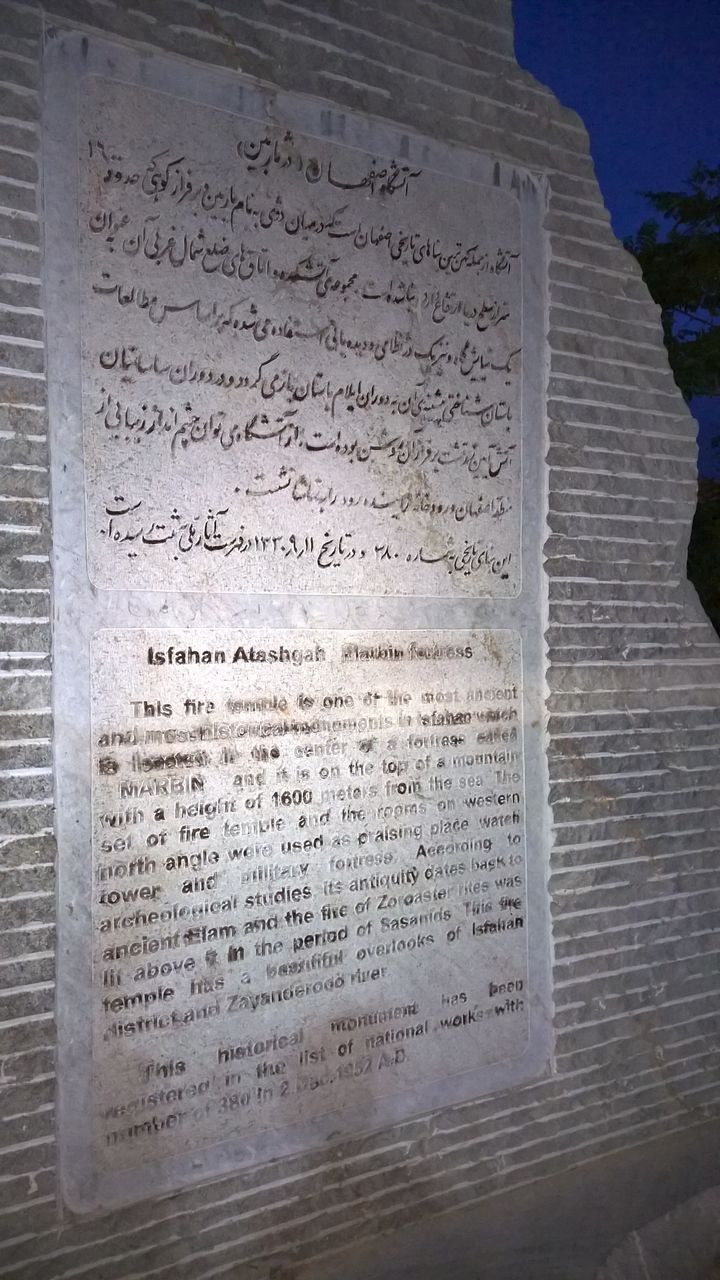 آتشگاه اصفهان (دژ ماربین)
آتشگاه از جمله کهن ترین بناهای تاریخی اصفهان است که در میان دشتی به نام ماربین و بر فراز کوهی که حدود ۱۶۰۰
متر از سطح دریا ارتفاع دارد بنا شده است. مجموعه ی آتشکده و اتاق های ضلع شمال غربی آن به عنوان
یک نیایش گاه و نیز یک دژ نظامی و دیده بانی استفاده می شده که بر اساس مطالعات
باستان شناختی پیشینه ی آن به دوران ایلام باستان باز می گردد و در دوران ساسانیان
آتش آیین زرتشت بر فراز آن روشن بوده است. از آتشگاه می توان چشم انداز زیبایی از
منطقه اصفهان و رودخانه زاینده رود را به تماشا نشست.
این بنای تاریخی به شماره ۳۸۰ و در تاریخ ۱۳۳۰/۹/۱۱ در فهرست آثار ملی به ثبت رسیده است.
Isfahan Atashgah Marbin fortress
This fire temple is one of the most ancient
and most historical monuments in Isfahan which
is located in the center of a fortress called
MARBIN and it is on the top of a mountain
with a height of 1600 meters from the sea. The
set of fire temple and the rooms on western
north angle were used as praising place watch
tower and military fortress. According to
archeological studies its antiquity dates back to
ancient Elam and the fire of Zoroaster rites was
lit above it in the period of Sasanids. This fire
temple has a beautiful overlooks of Isfahan
district and Zayanderood river.
This historical monument has been
registered in the list of national works with
number of 380 in 2.Dec.1952 A.D.